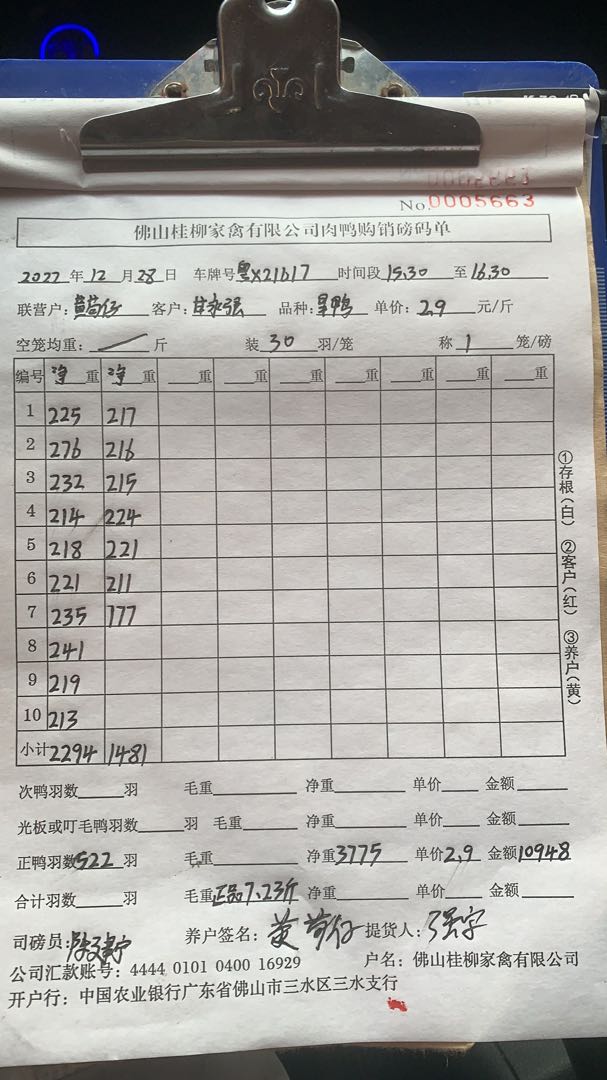 No.0005663
佛山桂柳家禽有限公司肉鸭购销磅码单
2022年12月28日 车牌号粤X21617 时间段15.30至16.30
联营户:黄苟仔 客户: 品种:旱鸭 单价:2.9元/斤
空笼均重:／斤 装30羽/笼 称1笼/磅
编号 净重 净重 重 重 重 重 重 重 重
1 225 217
2 276 216
3 232 215
4 214 224
5 218 221
6 221 211
7 235 177
8 241
9 219
10 213
小计 2294 1481
①存根(白) ②客户(红) ③养户(黄)
次鸭羽数 羽 毛重 净重 单价 金额
光板或叮毛鸭羽数 羽 毛重 净重 单价 金额
正鸭羽数522羽 毛重 净重3775 单价2.9 金额10948
合计羽数 羽 毛重正品7.23斤 净重 单价 金额
司磅员: 养户签名:黄苟仔 提货人:
公司汇款账号:4444 0101 0400 16929 户名:佛山桂柳家禽有限公司
开户行:中国农业银行广东省佛山市三水区三水支行